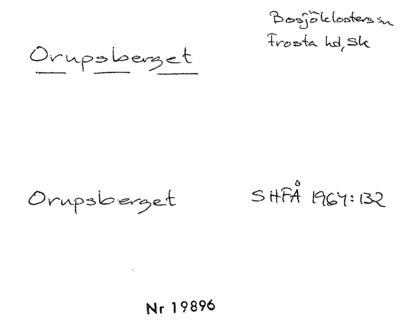 Orupsberget
Bosjöklosters sn
Frosta hd, Sk
Orupsberget
SHFÅ 1964:132
Nr 19896